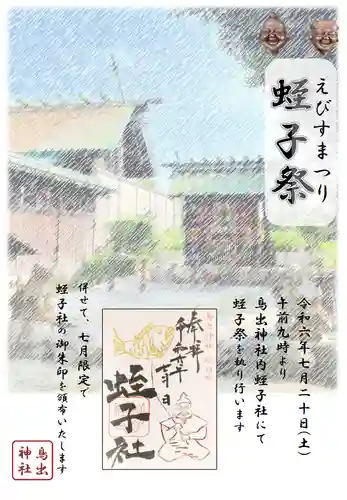 えびすまつり
蛭子祭
令和六年七月二十日(土)
午前九時より
鳥出神社内蛭子社にて
蛭子祭を執り行います
併せて、七月限定で
蛭子社の御朱印を頒布いたします
奉拝
蛭子社
鳥出
神社